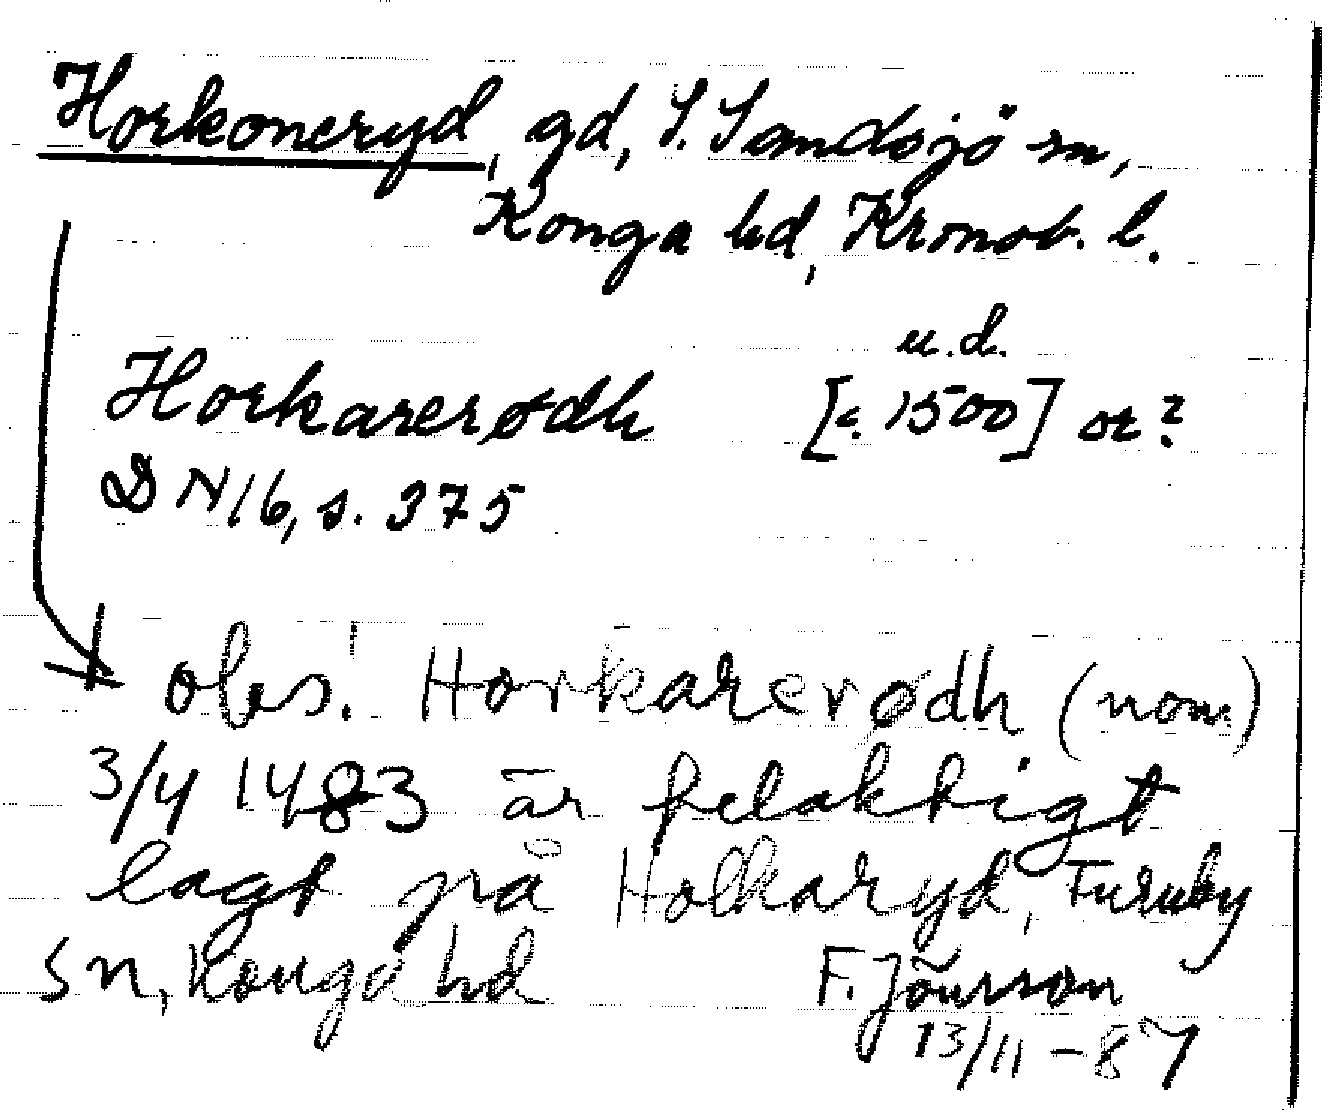 Horkoneryd, gd, S. Sandsjö sn,
Konga hd, Kronob. l.
u.d.
Horkarerødh [c. 1500] or?
DN 16, s. 375
obs! Horkarerødh (nom)
3/4 1483 är felaktigt
lagt på Holkaryd, Furuby
sn, Konga hd F. Jönsson
13/11 -87